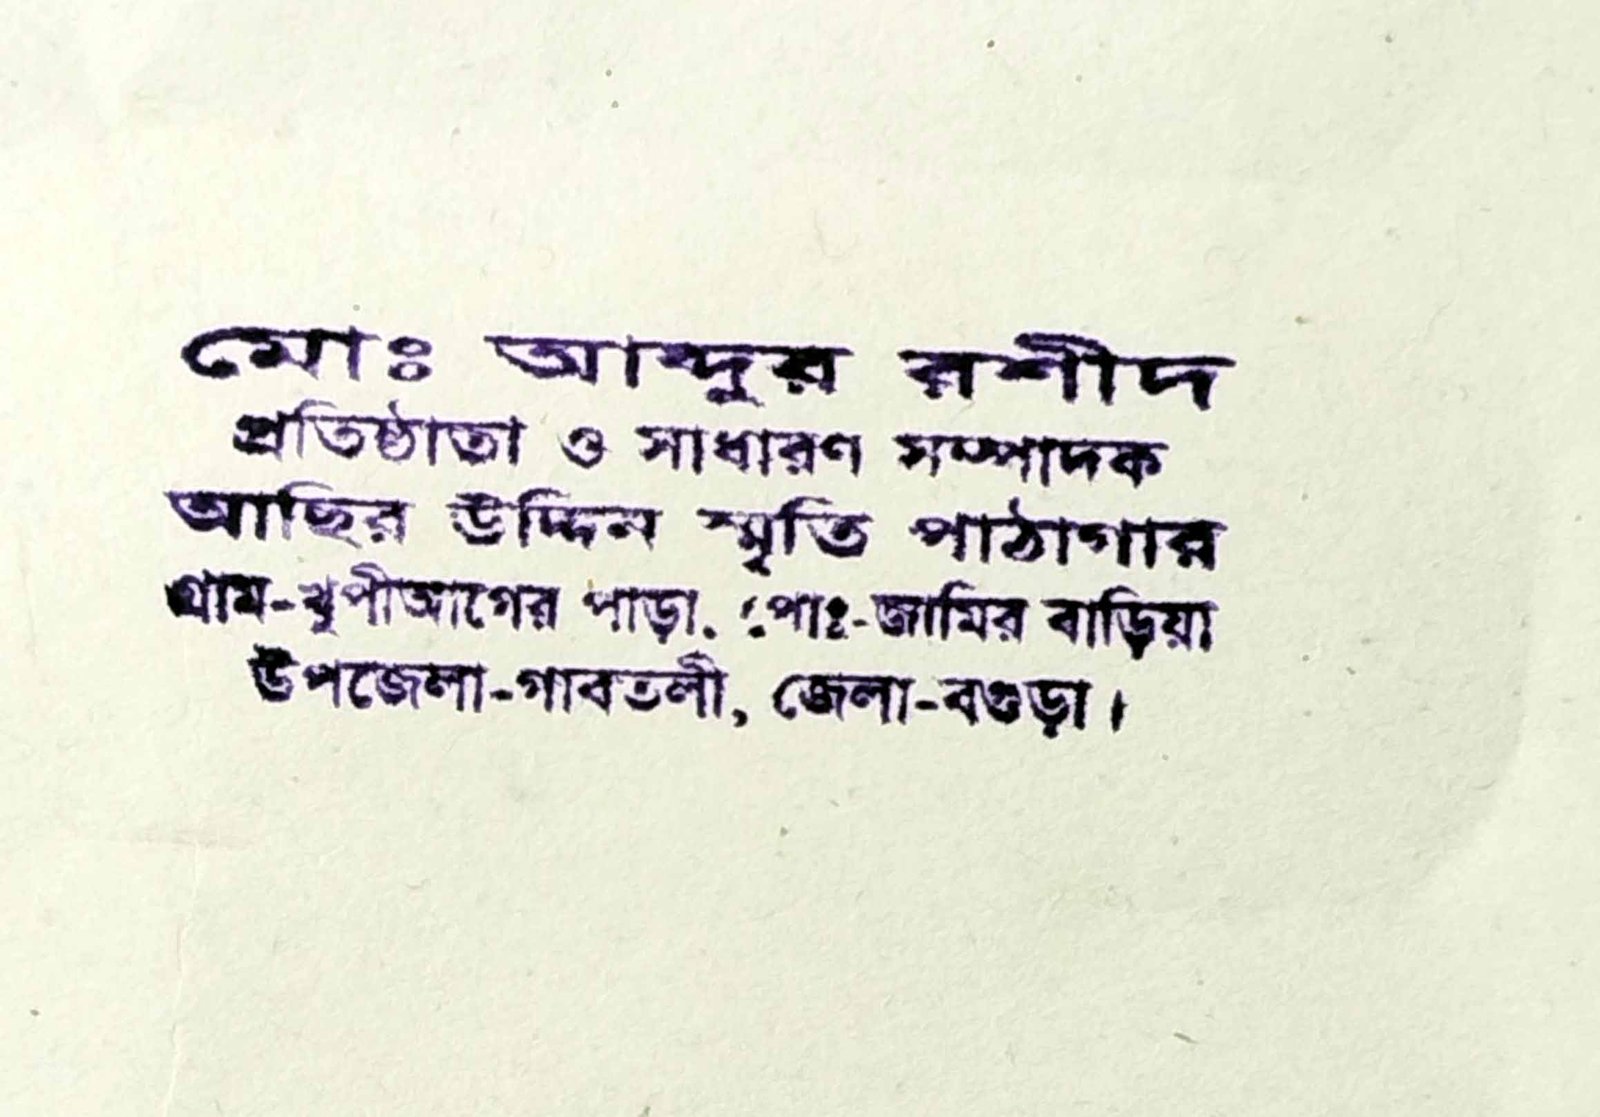 মোঃ আব্দুর রশীদ
প্রতিষ্ঠাতা ও সাধারণ সম্পাদক
আছির উদ্দিন স্মৃতি পাঠাগার
গ্রাম-খুপীআগের পাড়া, পোঃ-জামির বাড়িয়া
উপজেলা-গাবতলী, জেলা-বগুড়া।